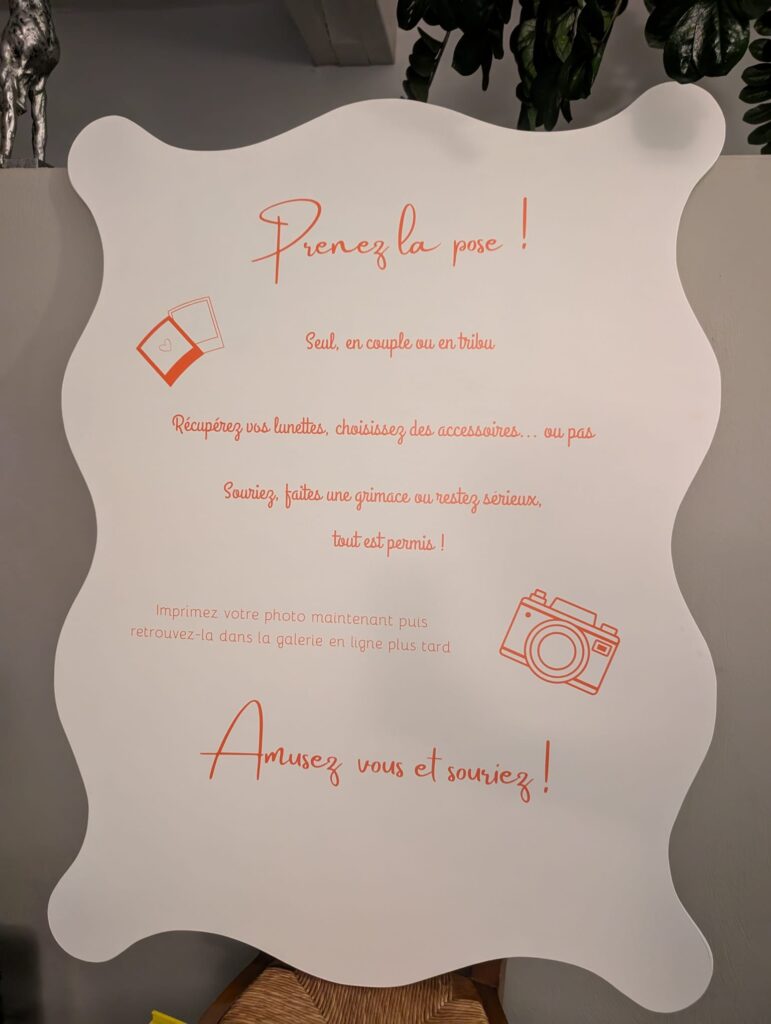 Prenez la pose !
Seul, en couple ou en tribu
Récupérez vos lunettes, choisissez des accessoires... ou pas
Souriez, faites une grimace ou restez sérieux,
tout est permis !
Imprimez votre photo maintenant puis
retrouvez-la dans la galerie en ligne plus tard
Amusez vous et souriez !